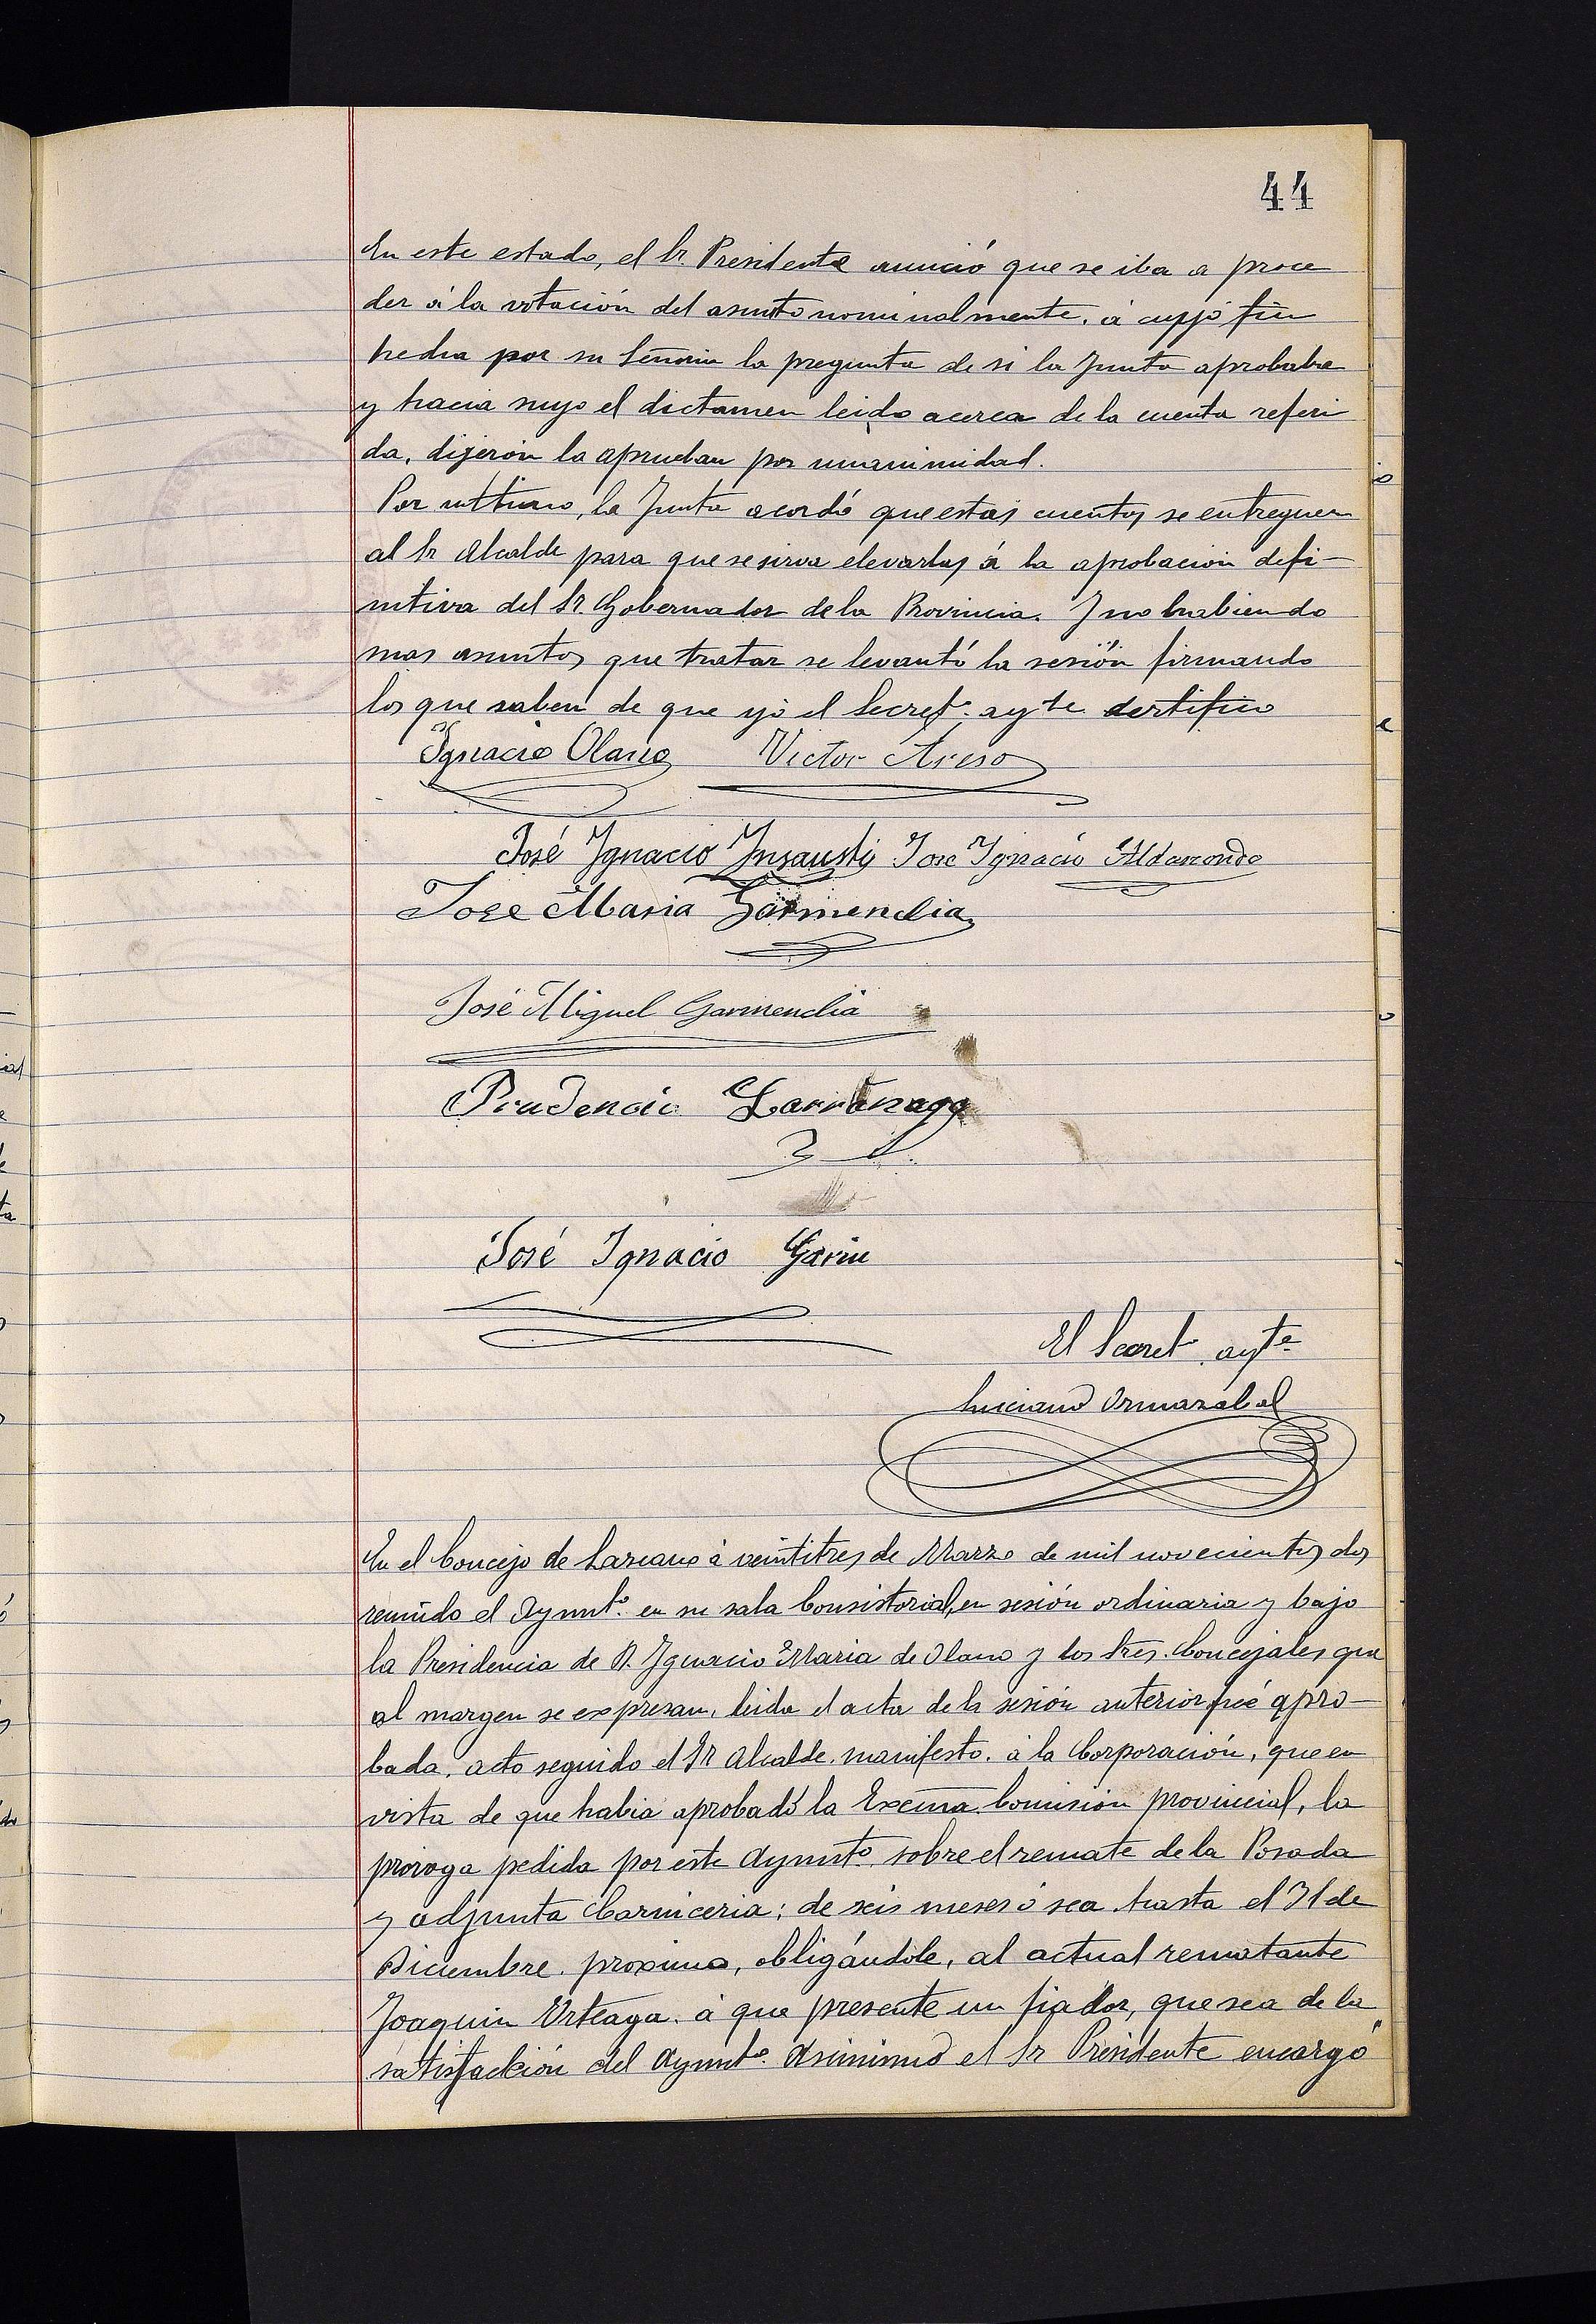 44
En este estado, el Sr. Presidente anució que se iba a proce
der á la votación del asunto nominalmente. á cuyo fin
hecha por su Señoria la pregunta de si la Junta aprobaba
y hacia suyo el dictamen leido acerca de la cuenta referi
da, dijerón la aprueban por unanimidad.
Por ultimo, la Junta acordó que estas cuentas se entreguen
al Sr Alcalde para que se sirva elevarlas á la aprobación defi-
nitiva del Sr. Gobernador de la Provincia. Y no habiendo
mas asuntos que tratar se levantó la sesión firmando
los que saben de que yó el Secretº. ayte certifico
Ignacio Olano Victor Areso
José Ygnacio Ynsausti Jose Ygnacio Aldasondo
Jose Maria Garmendia
José Miguel Garmendia
Prudencio Larrañaga
José Ignacio Garin
El Secret. aytº
Luciano Ormazabal
En el Concejo de Lazcano á veintitres de Marzo de mil novecientos dos
reunido el Aymtº. en su sala Consistorial, en sesión ordinaria y bajo
la Presidencia de D. Ygnacio Maria de Olano y los Sres. Concejales que
al margen se expresan, leida el acta de la sesión anterior fué apro-
bada. acto seguido el Sr Alcalde. manifesto. á la Corporación, que en
vista de que habia aprobado la Excma. Comisión provincial, la
proroga pedida por este Aymtº. sobre el remate de la Posada
y adjunta Carniceria; de seis meses ó sea hasta el 31 de
Diciembre. proximo, obligándole, al actual rematante
Joaquin Urteaga. á que presente un fiador, que sea de la
satisfacción del Aymtº. Asimismo el Sr Presidente encargó